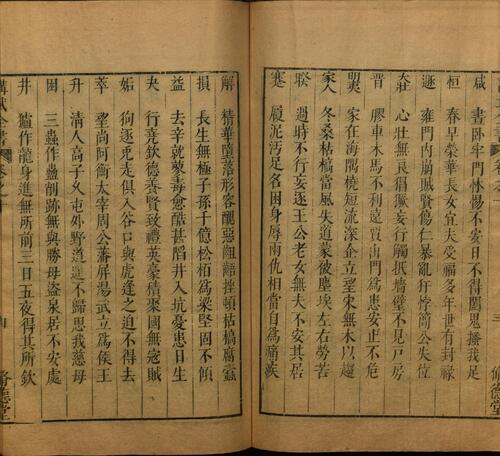 咸　晝臥牢門悚惕不安目不得闔鬼搔我足
恒　春早榮華長女宜夫受福多年世有封祿
遯　雍門內崩賊賢傷仁暴亂狂悖簡公失位
大壯　心壯無良猖獗妄行觸抵墻壁不見戶房
晉　膠車木馬不利遠賈出門為患安止不危
明夷　家在海隅橈短流深企立望宋無木以趨
家人　冬桑枯槁當風失道蒙被塵埃左右勞苦
睽　過時不行妄逐王公老女無夫不安其居
蹇　履泥污足名困身辱兩仇相當自為痛疾
解　精華墮落形容醜惡齟齬挫頓枯槁腐蠹
損　長生無極子孫千億松栢為梁堅固不傾
益　去辛就蓼毒愈酷甚陷井入坑憂患日生
夬　行堯欽德養賢致禮英豪積聚國無寇賊
姤　狗逐兎走俱入谷口與虎逢之迫不得去
萃　望尚阿衡太宰周公藩屏湯武立為侯王
升　清人高子久屯外野逍遙不歸思我慈母
困　三蟲作蠱剖跡無與勝母盜泉居不安處
井　鱣作龍身進無所前三日五夜得其所欽